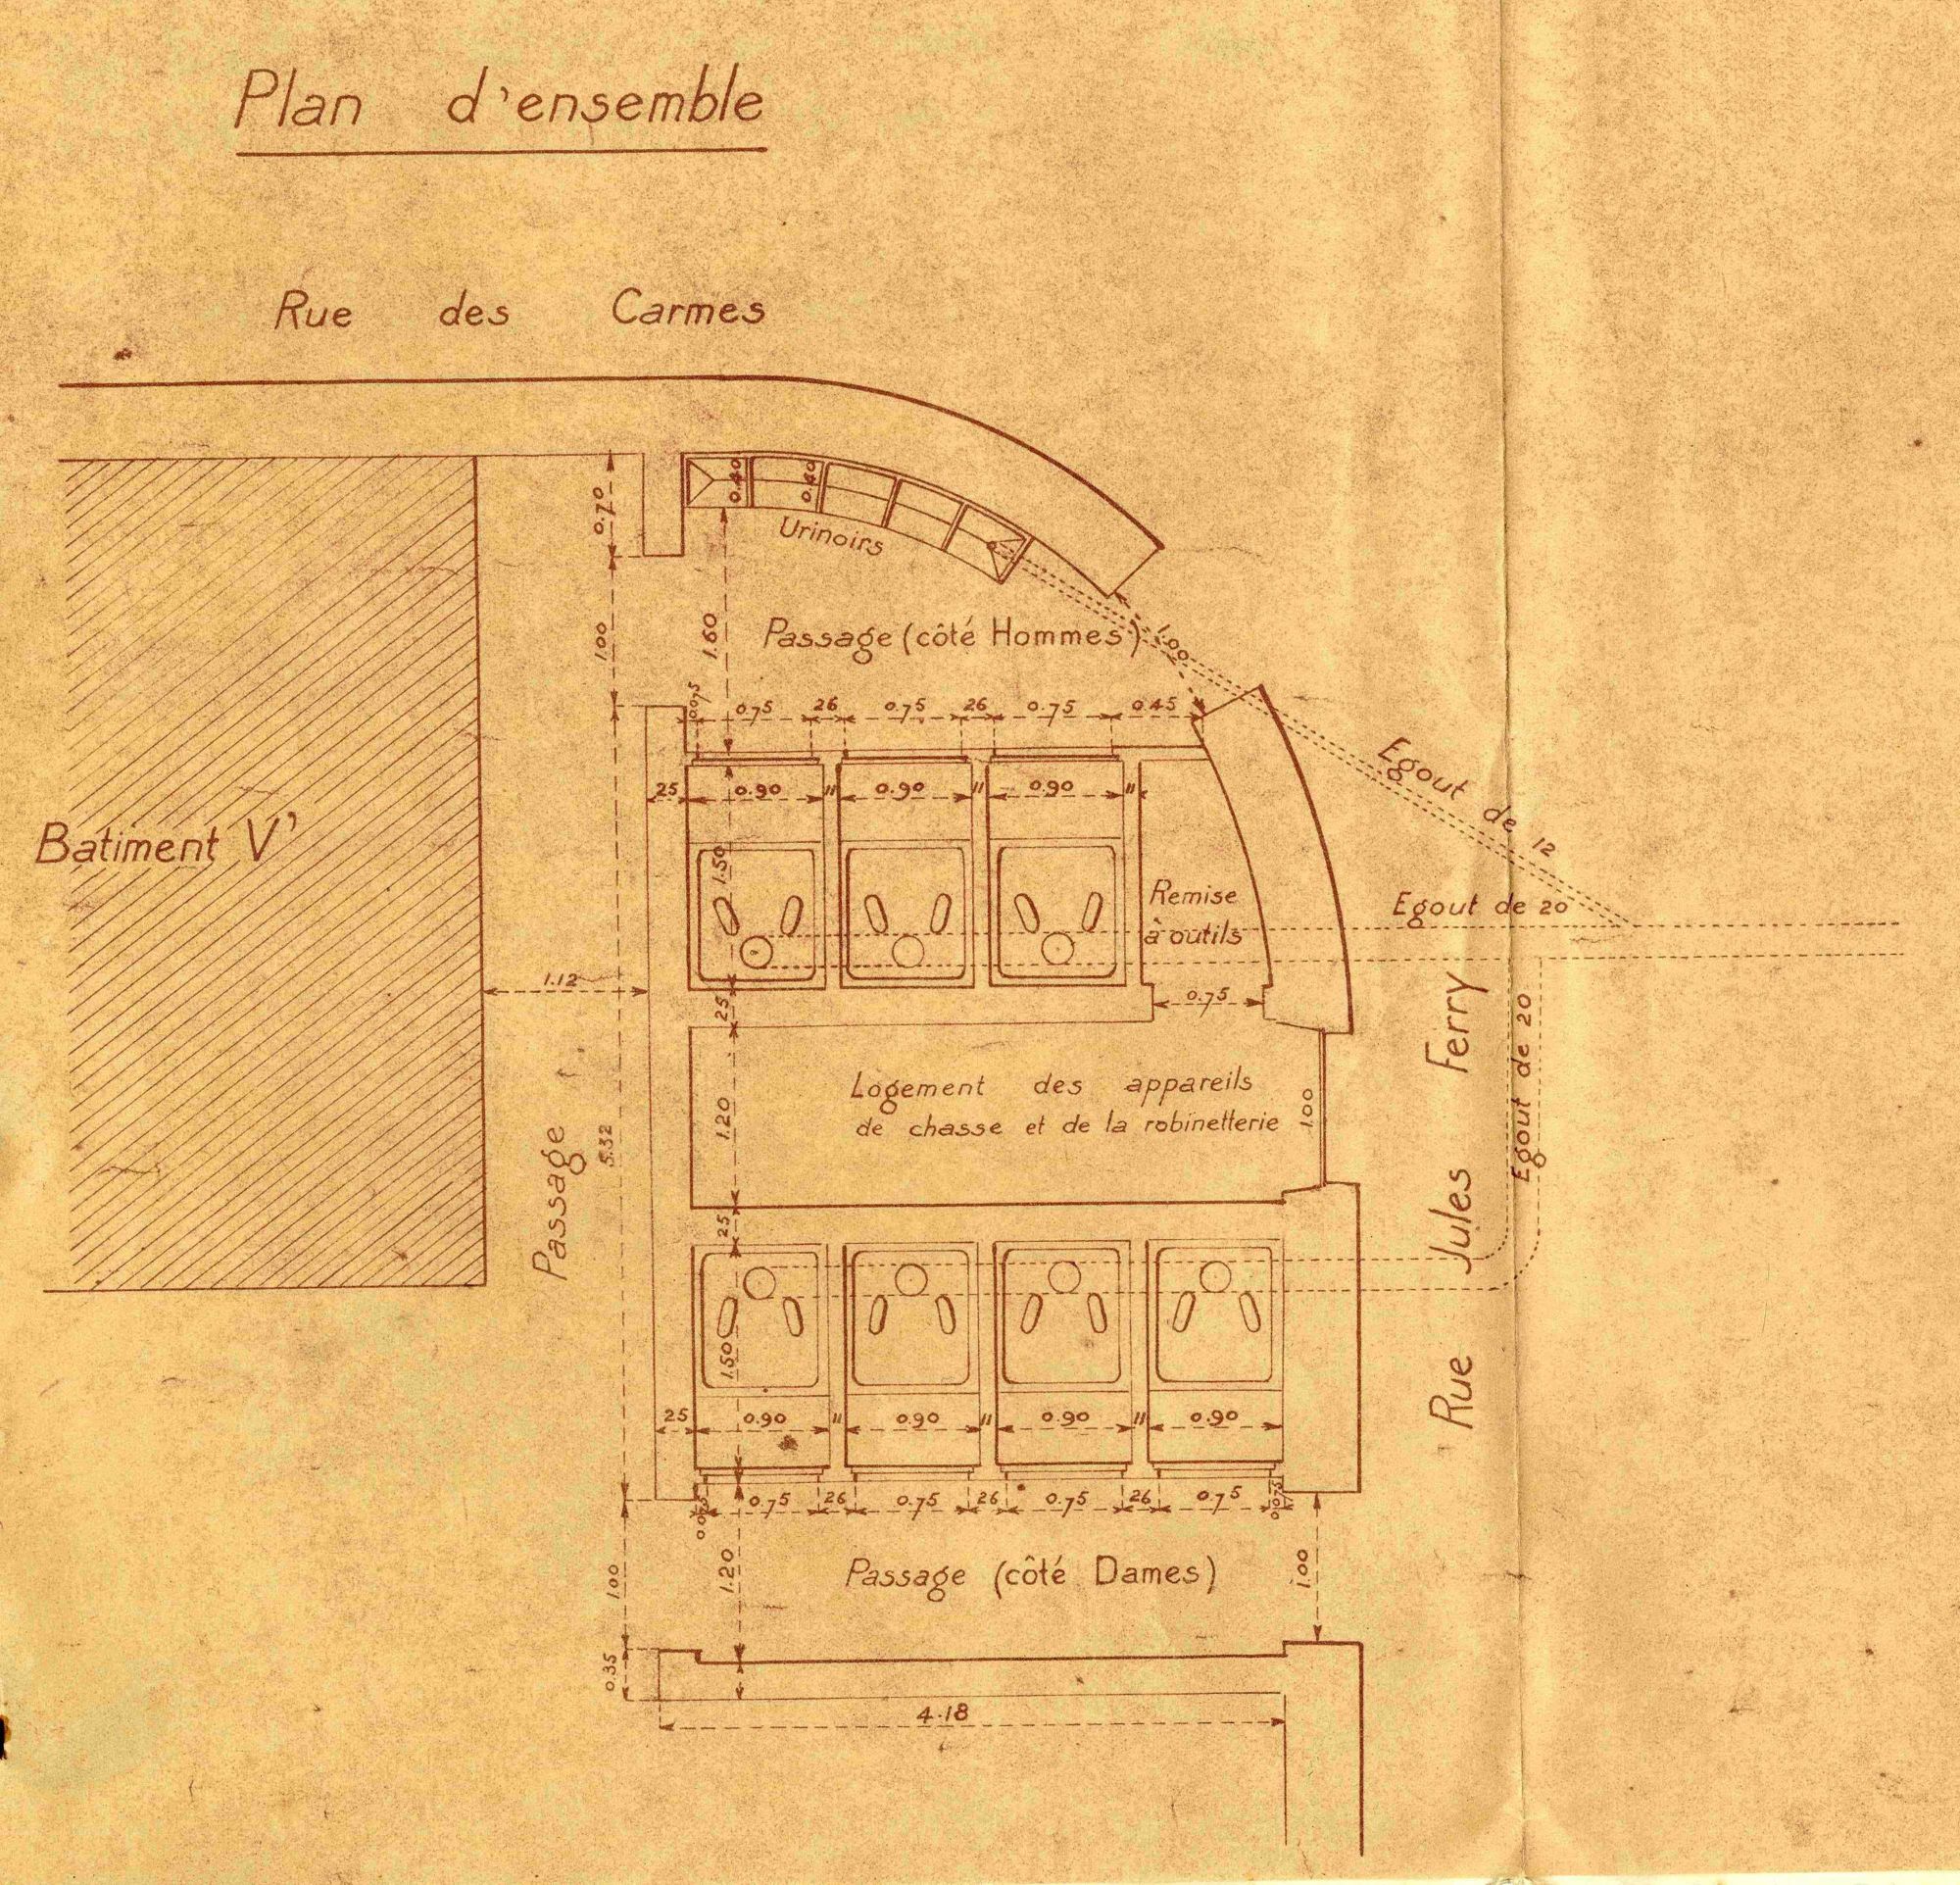 Plan d'ensemble
Rue des Carmes
0.40
0.40
0.70
Urinoirs
1.00
1.60
Passage (côté Hommes)
1.00
0.075
0.75
26
0.75
26
0.75
0.45
25
0.90
11
0.90
11
0.90
11
Egout de 12
Batiment V'
1.50
Remise
à outils
Egout de 20
1.12
25
0.75
Rue Jules Ferry
Egout de 20
Passage
5.32
1.20
Logement des appareils
de chasse et de la robinetterie
1.00
25
1.50
25
0.90
11
0.90
11
0.90
11
0.90
0.075
0.75
26
0.75
26
0.75
26
0.75
0.075
1.00
1.20
Passage (côté Dames)
1.00
0.35
4.18